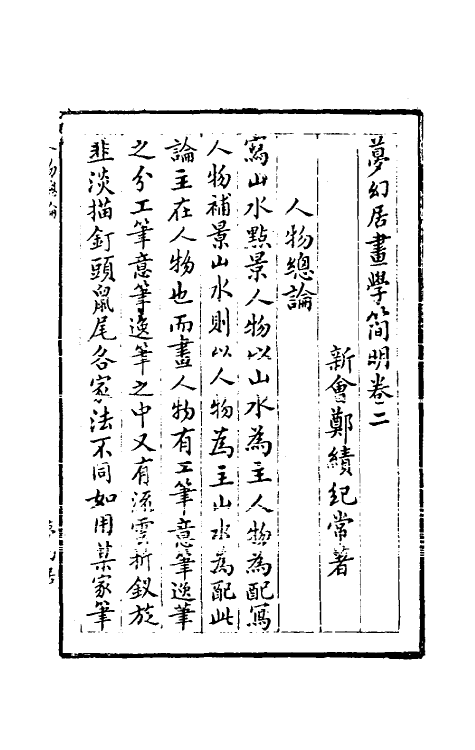 夢幻居畫學簡明卷二
新會鄭績紀常著
人物總論
寫山水點景人物以山水為主人物為配寫
人物補景山水則以人物為主山水為配此
論主在人物也而畫人物有工筆意筆逸筆
之分工筆意筆逸筆之中又有流雲折釵旋
韭淡描釘頭鼠尾各家法不同如用某家筆